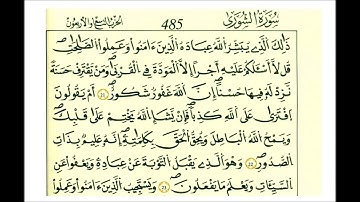 سُورَةُ الشُّورَىٰ 485 الجُزْءُ الخَامِسُ وَالعِشْرُونَ
ذَٰلِكَ ٱلَّذِى يُبَشِّرُ ٱللَّهُ عِبَادَهُ ٱلَّذِينَ ءَامَنُوا۟ وَعَمِلُوا۟ ٱلصَّٰلِحَٰتِ
قُل لَّآ أَسْـَٔلُكُمْ عَلَيْهِ أَجْرًا إِلَّا ٱلْمَوَدَّةَ فِى ٱلْقُرْبَىٰ وَمَن يَقْتَرِفْ حَسَنَةً
نَّزِدْ لَهُۥ فِيهَا حُسْنًا إِنَّ ٱللَّهَ غَفُورٌ شَكُورٌ أَمْ يَقُولُونَ
ٱفْتَرَىٰ عَلَى ٱللَّهِ كَذِبًا فَإِن يَشَإِ ٱللَّهُ يَخْتِمْ عَلَىٰ قَلْبِكَ
وَيَمْحُ ٱللَّهُ ٱلْبَٰطِلَ وَيُحِقُّ ٱلْحَقَّ بِكَلِمَٰتِهِۦٓ إِنَّهُۥ عَلِيمٌۢ بِذَاتِ
ٱلصُّدُورِ وَهُوَ ٱلَّذِى يَقْبَلُ ٱلتَّوْبَةَ عَنْ عِبَادِهِۦ وَيَعْفُوا۟ عَنِ
ٱلسَّيِّـَٔاتِ وَيَعْلَمُ مَا يَفْعَلُونَ وَيَسْتَجِيبُ ٱلَّذِينَ ءَامَنُوا۟ وَعَمِلُوا۟